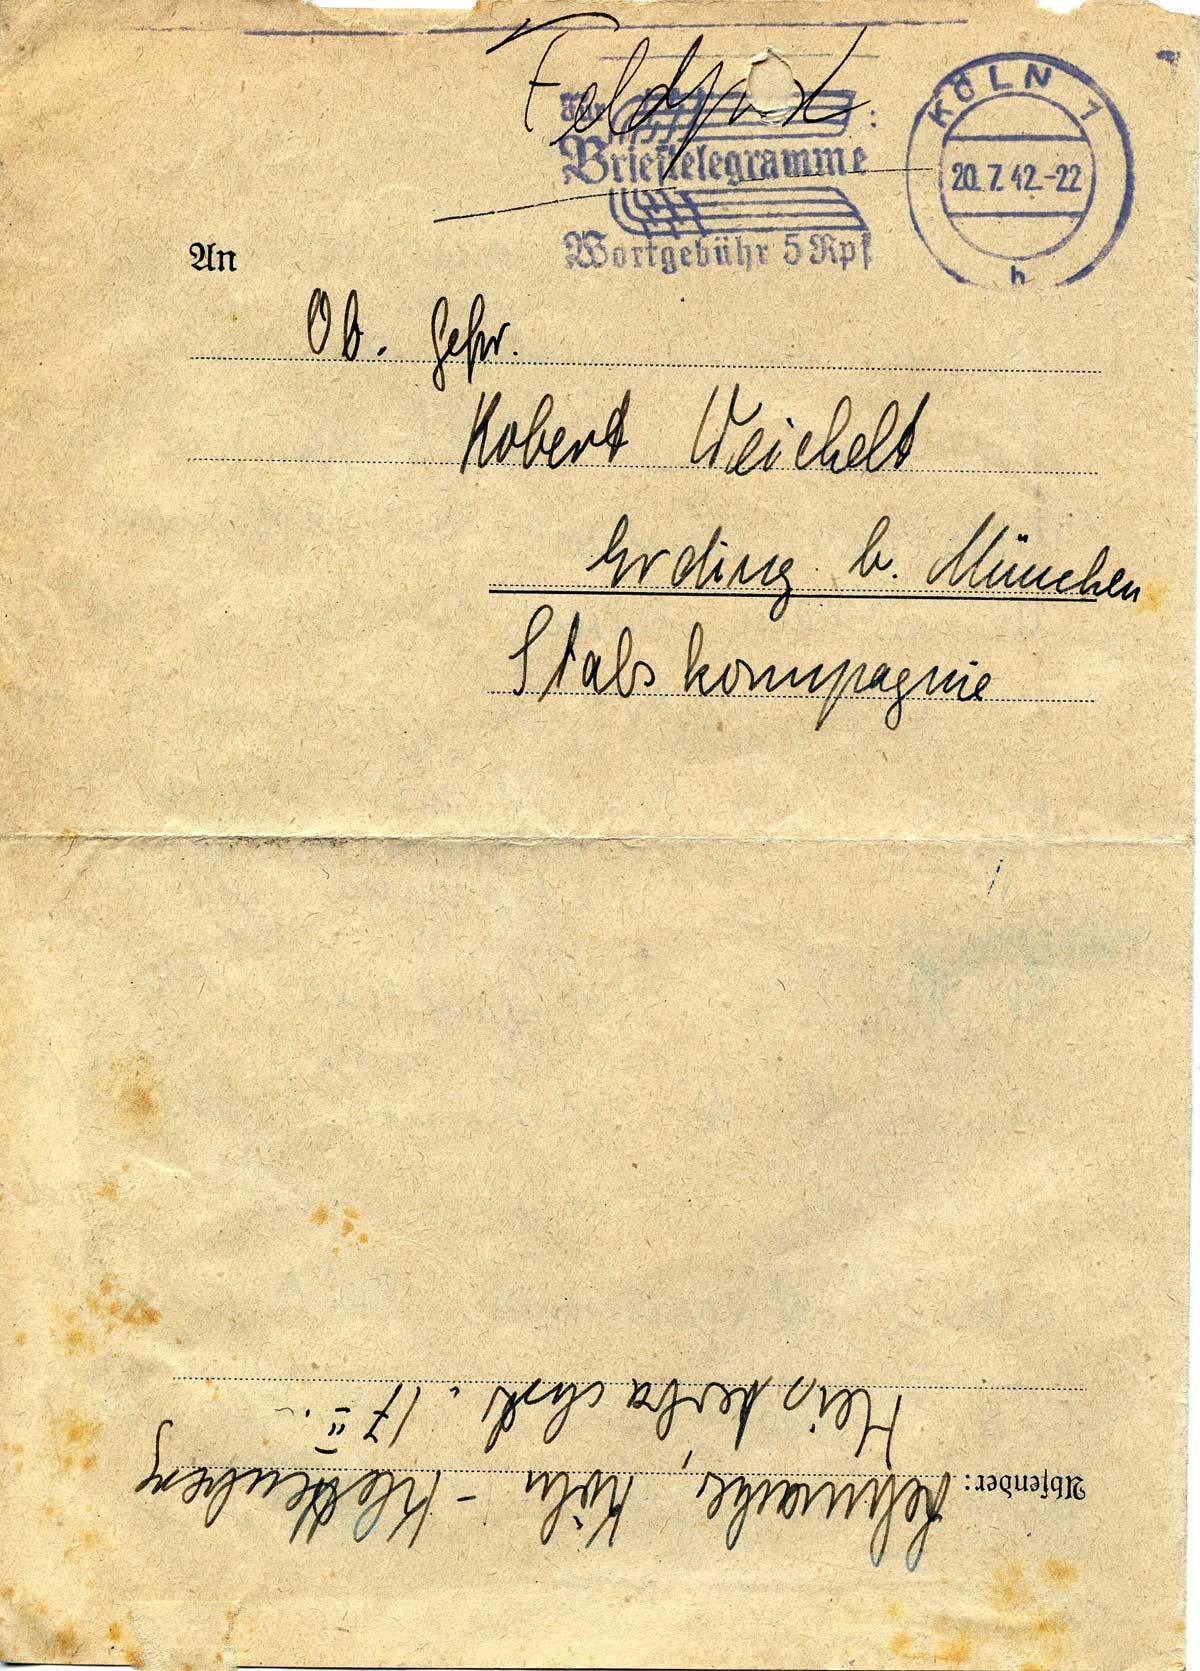 Feldpost
Für :
Brieftelegramme
Wortgebühr 5 Rpf
KÖLN 1
20.7.42.-22
h
An
Ob. Gefr.
Robert Weichelt
Erding b. München
Stabskompagnie
Absender: Schwanke, Köln - Klettenberg
Heisterbachstr. 17 II.